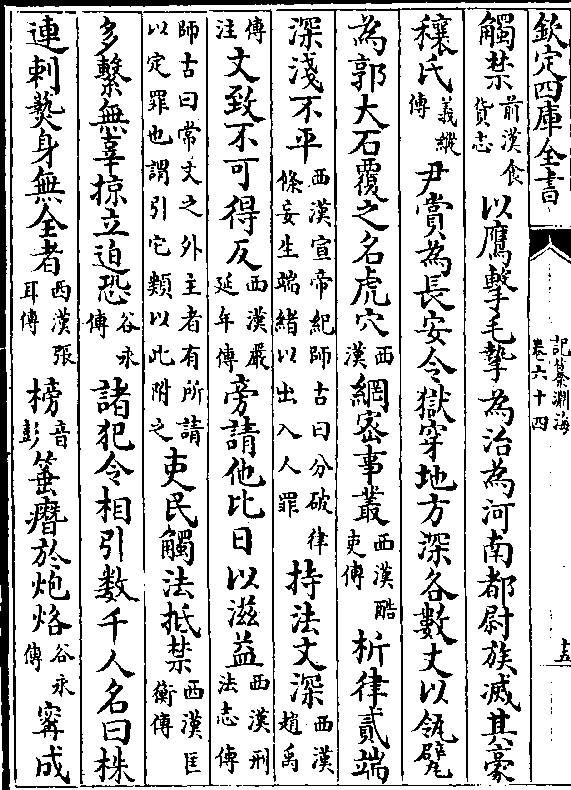 欽定四庫全書
記纂淵海
卷六十四
十五
觸禁前漢食貨志以鷹擊毛摯為治為河南都尉族滅其豪
穰氏義縱傳尹賞為長安令獄穿地方深各數丈以瓴甓
為郭大石覆之名虎穴西漢網密事叢西漢酷吏傳析律貳端
深淺不平西漢宣帝紀師古曰分破律條妄生端緒以出入人罪持法文深西漢趙禹
傳注文致不可得反西漢嚴延年傳旁請他比日以滋益西漢刑法志傳
師古曰常文之外主者有所請以定罪也謂引它類以此附之吏民觸法抵禁西漢匡衡傳
多繫無辜掠立迫恐谷永傳諸犯令相引數千人名曰株
連刺爇身無全者西漢張耳傳榜音彭箠㿊於炮烙谷永傳寗成